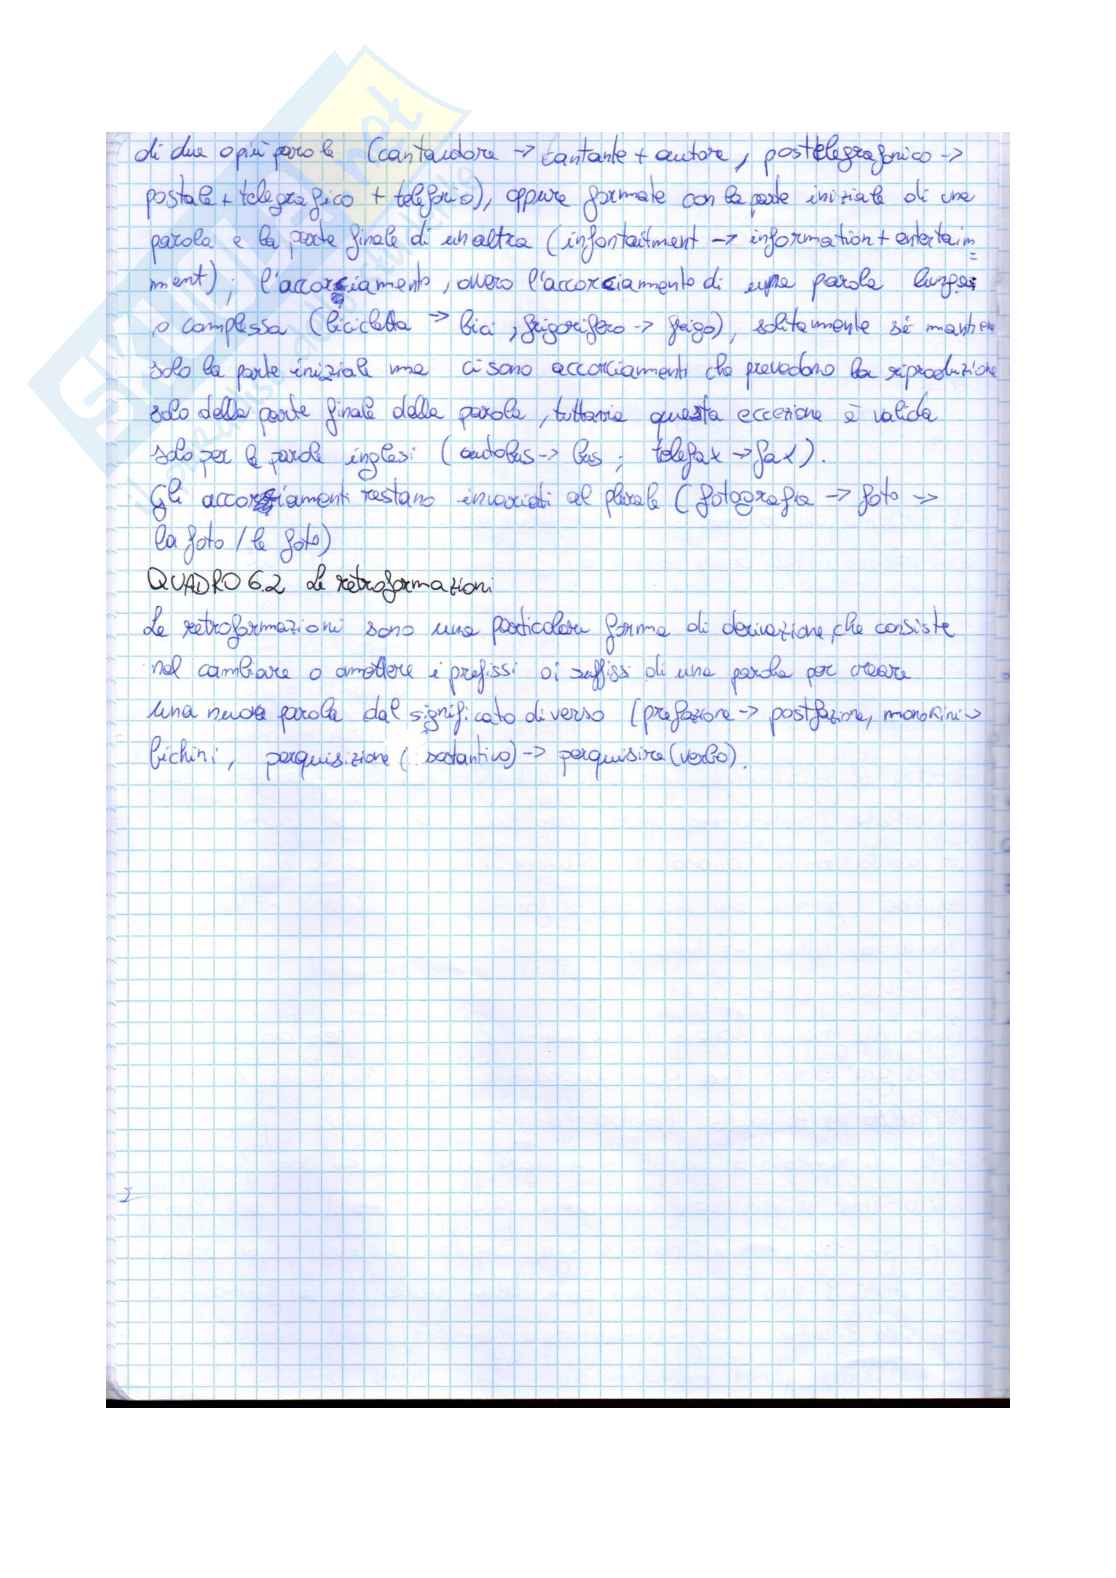 di due o più parole (cantautore -> cantante + autore, postelegrafonico ->
postale + telegrafico + telefonico), oppure formate con la parte iniziale di una
parola e la parte finale di un altra (infontaitment -> information + entertain=
ment); l'accorciamento, ovvero l'accorciamento di una parola lunga
o complessa (bicicletta -> bici, frigorifero -> frigo), solitamente si mantiene
solo la parte iniziale ma ci sono accorciamenti che prevedono la riproduzione
solo della parte finale della parola, tuttavia questa eccezione è valida
solo per le parole inglesi (autobus -> bus; telefax -> fax).
Gli accorciamenti restano invariati al plurale (fotografia -> foto ->
la foto / le foto)
QUADRO 6.2 Le retroformazioni
Le retroformazioni sono una particolare forma di derivazione, che consiste
nel cambiare o omettere i prefissi o i suffissi di una parola per creare
una nuova parola dal significato diverso (prefazione -> postfazione, monokini ->
bichini, perquisizione (sostantivo) -> perquisire (verbo).
SKUOLA.net